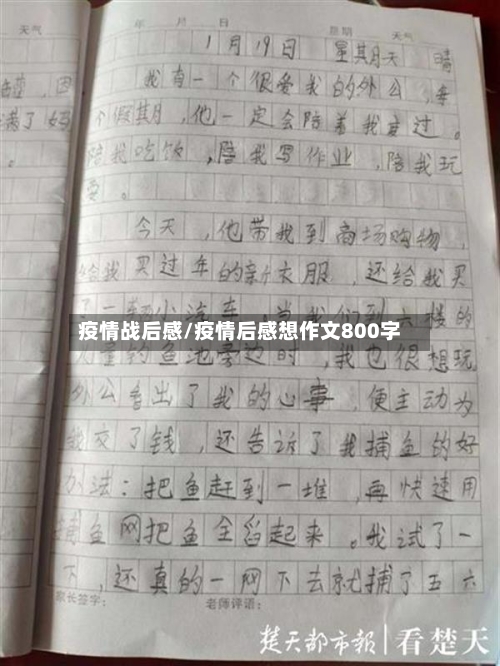 天气
年 月 日 星期 天气
1月19日 星期天 晴
因
满了妈
我有一个很爱我的外公,每
个假期,他一定会陪着我度过。
陪我吃饭,陪我写作业,陪我玩
耍。
今天,他带我到商场购物,
给我买过年的新衣服,还给我买
疫情战后感/疫情后感想作文800字
六楼的
钓鱼池旁边时,我也很想玩
外公看出了我的心事,便主动为
我交了钱,还告诉了我捕鱼的好
办法:把鱼赶到一堆,再快速用
捕鱼网把鱼全舀起来。我试了一
下,还真的一网下去就捕了五六
家长签字: 老师评语:
楚天都市报 | 看楚天